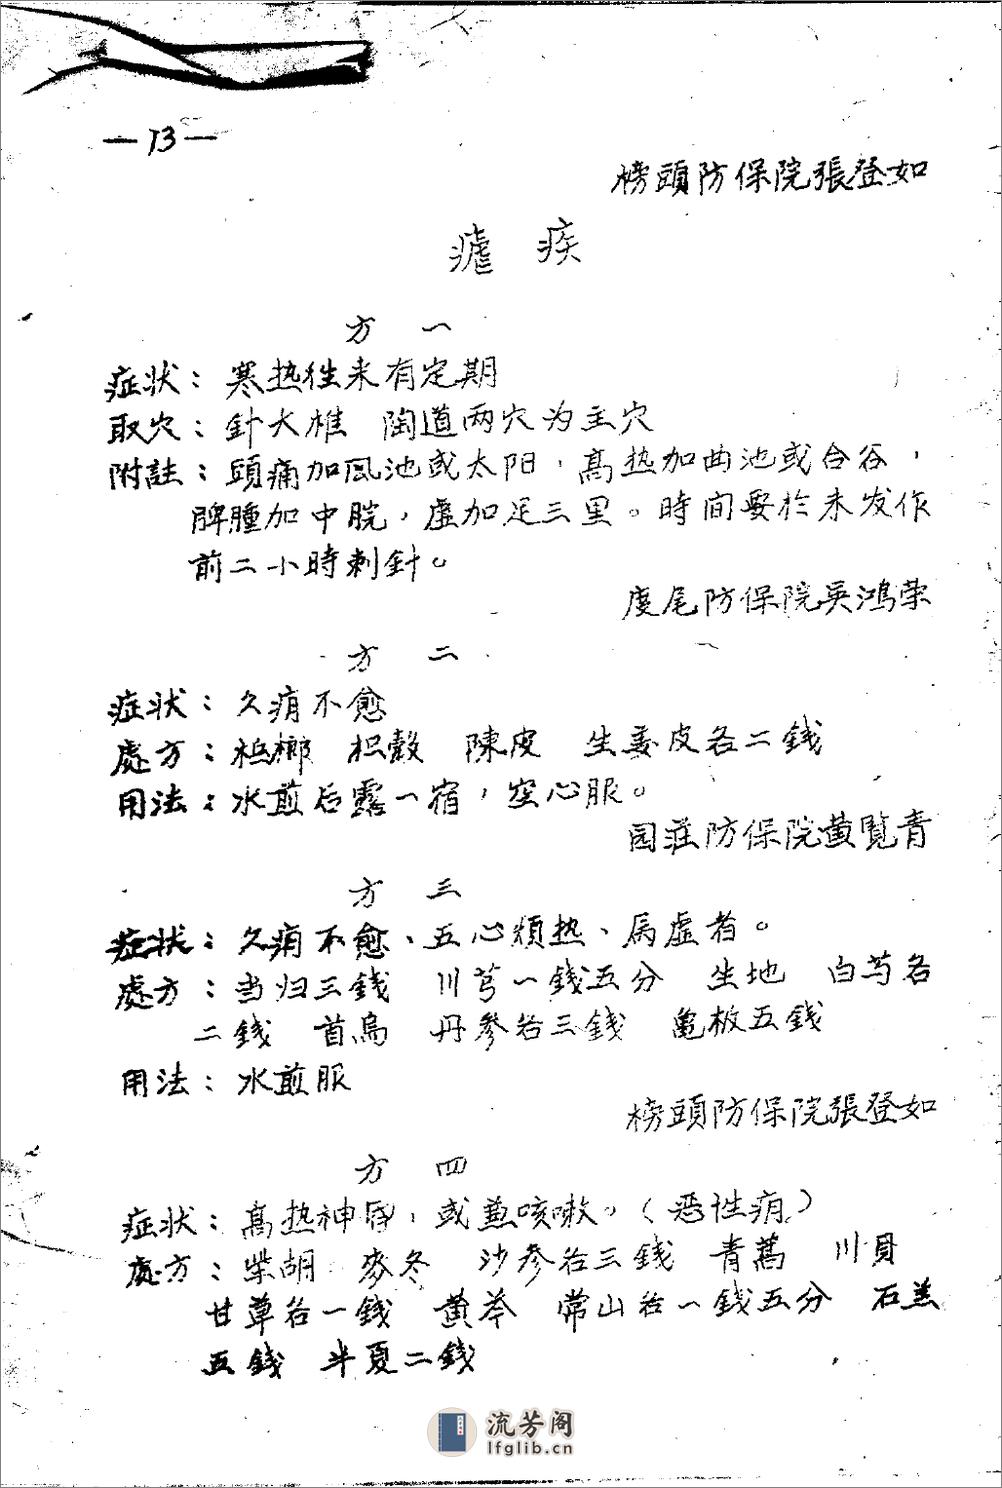 —13—
榜頭防保院張登如
瘧 疾
方 一
症状：寒热往来有定期
取穴：針大椎 陶道两穴为主穴
附註：頭痛加風池或太阳，高热加曲池或合谷，
脾腫加中脘，虚加足三里。時間要於未发作
前二小時刺針。
度尾防保院吳鴻荣
方 二
症状：久痟不愈
處方：梹榔 枳殼 陳皮 生姜皮各二錢
用法：水煎后露一宿，空心服。
园莊防保院黄覧青
方 三
症状：久痟不愈、五心煩热、属虚者。
處方：当归三錢 川芎一錢五分 生地 白芍各
二錢 首烏 丹參各三錢 龜板五錢
用法：水煎服
榜頭防保院張登如
方 四
症状：高热神昏，或兼咳嗽。（恶性痟）
處方：柴胡 麥冬 沙参各三錢 青蒿 川貝
甘草各一錢 黄芩 常山各一錢五分 石羔
五錢 半夏二錢
流芳阁
lfglib.cn